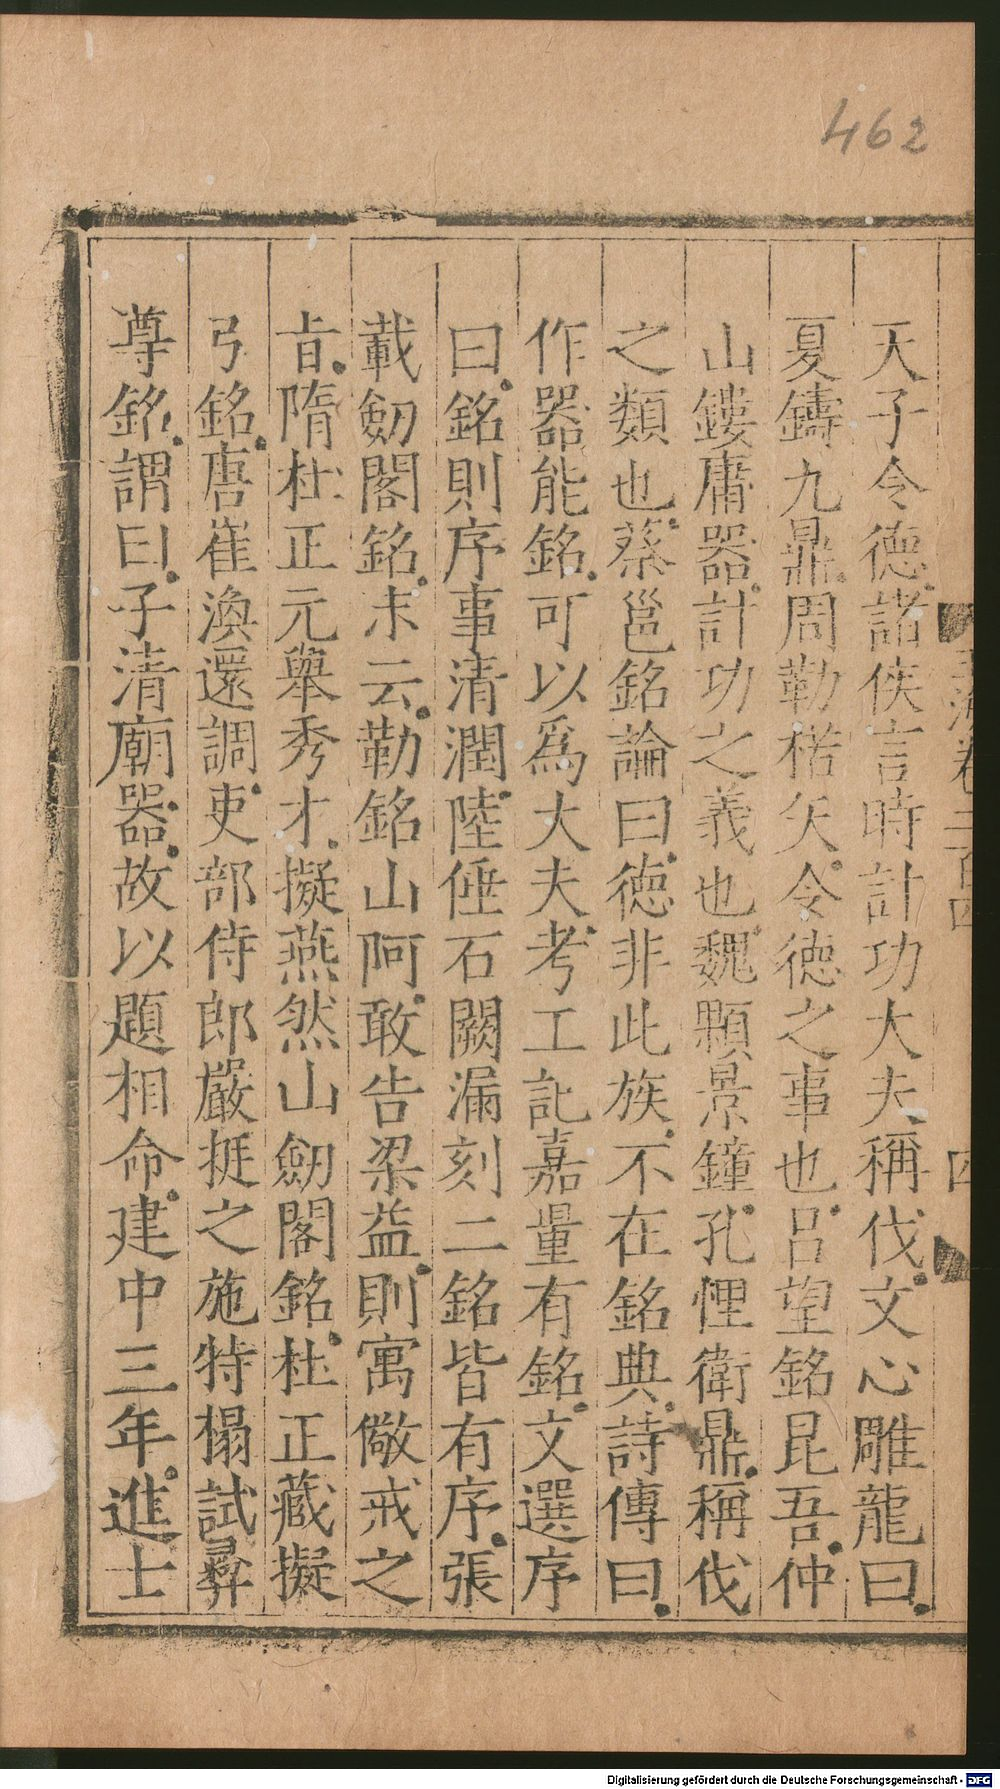 462
玉海卷二百四
四
天子令德諸侯言時計功大夫稱伐文心雕龍曰
夏鑄九鼎周勒楛矢令德之事也呂望銘昆吾仲
山鏤庸器計功之義也魏顆景鐘孔悝衛鼎稱伐
之類也蔡邕銘論曰德非此族不在銘典詩傳曰
作器能銘可以爲大夫考工記嘉量有銘文選序
曰銘則序事清潤陸倕石闕漏刻二銘皆有序張
載劒閣銘末云勒銘山阿敢告梁益則寓儆戒之
㫖隋杜正元舉秀才擬燕然山劒閣銘杜正藏擬
弓銘唐崔渙還調吏部侍郎嚴挺之施特榻試彞
尊銘謂曰子清廟器故以題相命建中三年進士
Digitalisierung gefördert durch die Deutsche Forschungsgemeinschaft - DFG